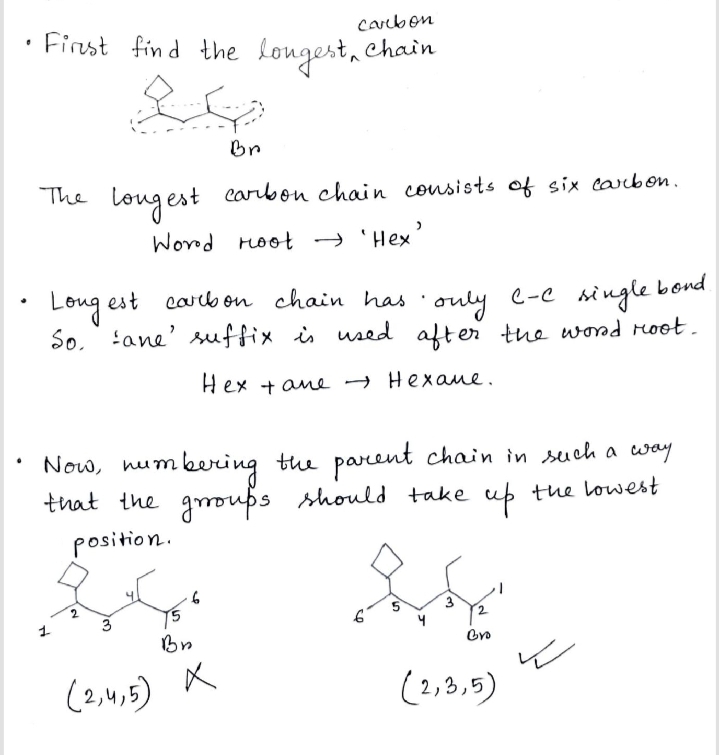 carbon
• First find the longest ‸ chain
Br
The longest carbon chain consists of six carbon.
Word root → 'Hex'
• Longest carbon chain has only C-C single bond
So. 'ane' suffix is used after the word root.
Hex + ane → Hexane.
• Now, numbering the parent chain in such a way
that the groups should take up the lowest
position.
1 2 3 4 5 6
Br
(2,4,5) ✗
6 5 4 3 2 1
Br
(2,3,5) ✓